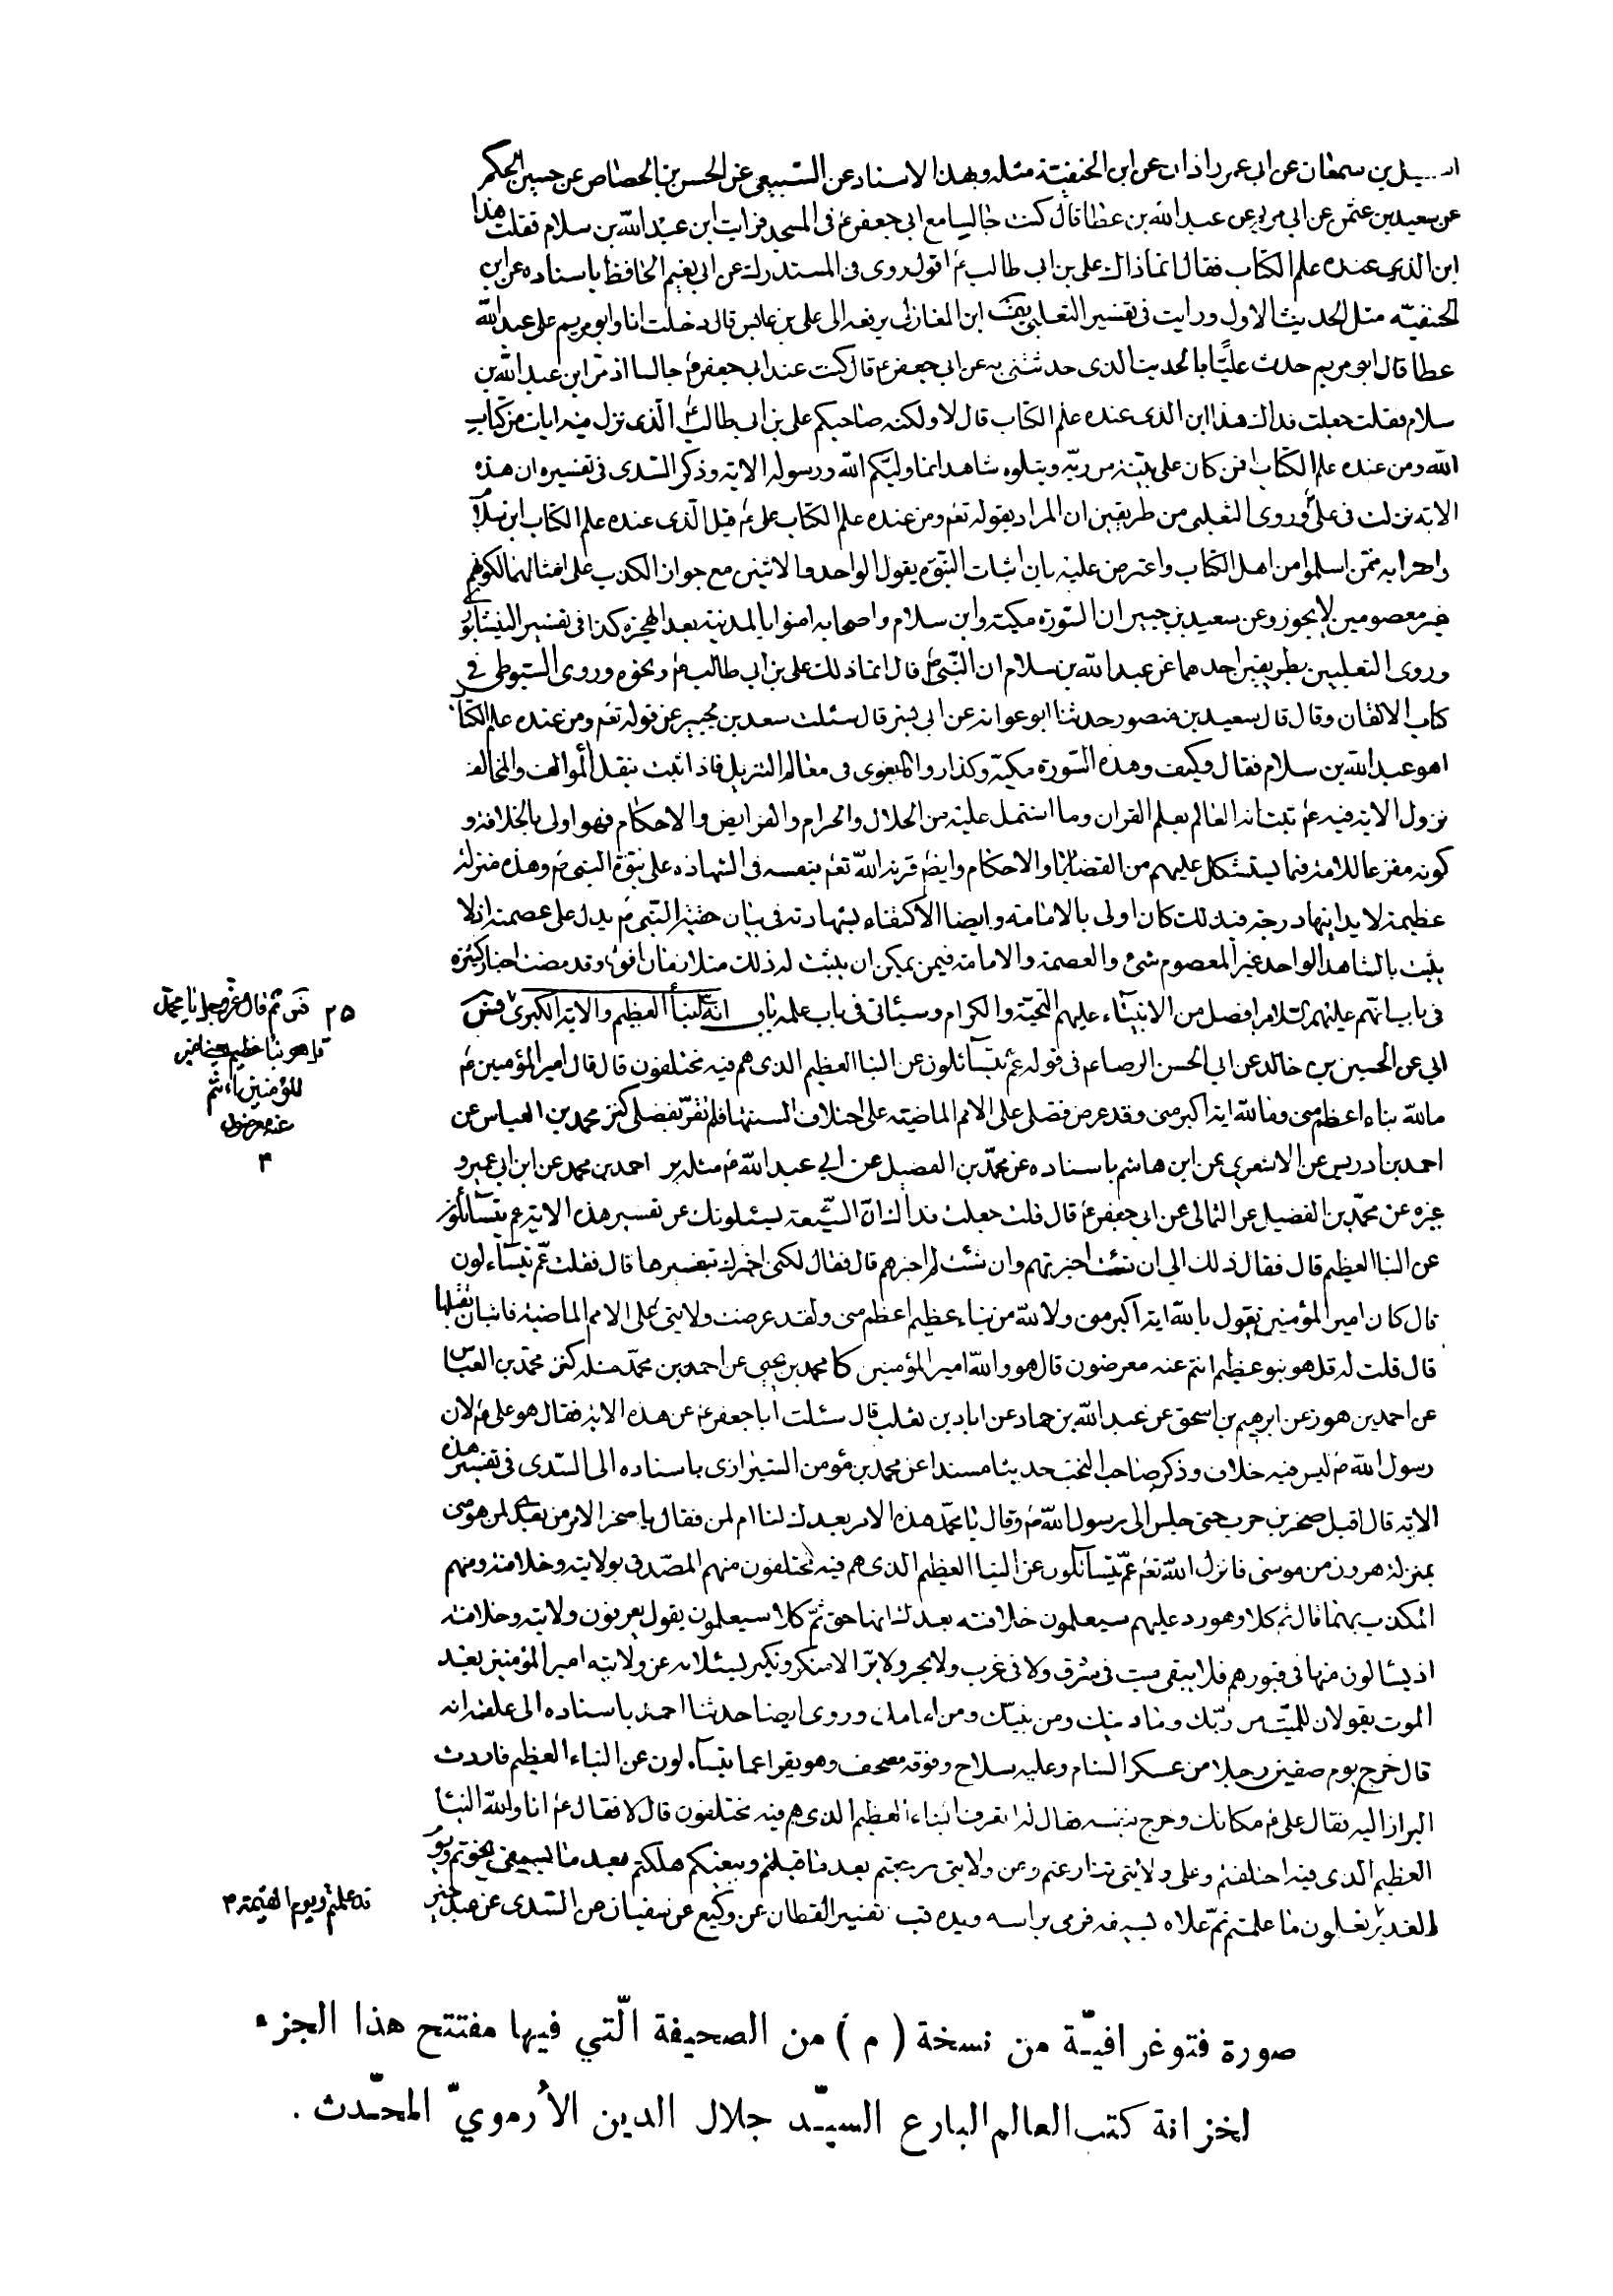 بن سمعان عن ابى عمر زاذان عن ابن الحنفيّة مثله وبهذا الاسناد عن السبيعى عن الحسن بن الحصاص عن حسين الحكم
عن سعيد بن عثمن عن ابى مريم عن عبد الله بن عطا قال كنت جالسا مع ابى جعفر ع فى المسجد فرايت ابن عبد الله بن سلام فقلت هذا
ابن الذى عنده علم الكتاب فقال انما ذاك على بن ابى طالب ع اقول روى فى المستدرك عن ابى نعيم الحافظ باسناده عن ابن
الحنفيّه مثل الحديث الاول ورايت فى تفسير الثعلبى ابن المغازلى يرفعه الى على بن عابس قال دخلت انا وابو مريم على عبد الله
عطا قال ابو مريم حدث عليًّا بالحديث الذى حدثتنى به عن ابى جعفر ع قال كنت عند ابى جعفر ع جالسا اذ مر ابن عبد الله بن
سلام فقلت جعلت فداك هذا ابن الذى عنده علم الكتاب قال لا ولكنه صاحبكم على بن ابى طالب ع الّذى نزل فيه ايات من كتاب
الله ومن عنده علم الكتاب افمن كان على بيّنة من ربّه ويتلوه شاهد انما وليّكم الله ورسوله الاية وذكر السّدى فى تفسيره ان هذه
الاية نزلت فى على ع وروى الثعلبى من طريقين ان المراد بقوله تعم ومن عنده علم الكتاب على ع قيل الّذى عنده علم الكتاب ابن سلام
واضرابه ممّن اسلموا من اهل الكتاب واعترض عليه بان اثبات النبوّة بقول الواحد والاثنين مع جواز الكذب على امثالهما لكونهم
غير معصومين لا يجوز وعن سعيد بن جبير ان السّورة مكية وابن سلام واصحابه امنوا بالمدينة بعد الهجرة كذا فى تفسير النيسابورى
وروى الثعلبى بطريقين احدهما عن عبد الله بن سلام ان النّبى ص قال انما ذلك على بن ابى طالب ع ونحوه وروى السّيوطى فى
كتاب الاتقان وقال قال سعيد بن منصور حدثنا ابو عوانه عن ابى بشر قال سئلت سعد بن جبير عن قوله تعم ومن عنده علم الكتاب
اهو عبد الله بن سلام فقال وكيف وهذه السّورة مكيّة وكذا رواه البغوى فى معالم التنزيل فاذا ثبت بنقل المؤالف والمخالف
نزول الاية فيه ع ثبت انه العالم بعلم القران وما اشتمل عليه من الحلال والحرام والفرايض والاحكام فهو اولى بالخلافة و
كونه مفزعا للامة فيما يستشكل عليهم من القضايا والاحكام وايضا قرنه الله تعم بنفسه فى الشهادة على نبوّة النبى ص وهذه منزلة
عظيمة لا يدانيها درجة فبذلك كان اولى بالامامة وايضا الاكتفاء بشهادته فى بيان حقية النّبى ص يدل على عصمته اذ لا
يثبت بالشاهد الواحد غير المعصوم شئ والعصمة والامامة فيمن يمكن ان يثبت له ذلك متلازمان اقول وقد مضت اخبار كثيرة
فى باب انّهم عليهم السّلام افضل من الانبياء عليهم التحيّة والكرام وسيئاتى فى باب علمه باب انّه ع النبأ العظيم والاية الكبرى فس
ابى عن الحسين بن خالد عن ابى الحسن الرضا ع فى قوله عم يتسآئلون عن النبا العظيم الذى هم فيه مختلفون قال قال امير المؤمنين ع
ما لله نباء اعظم منى وما لله اية اكبر منى وقد عرض فضلى على الامم الماضية على اختلاف السنتها فلم تقرّ بفضلى كنز محمد بن العباس عن
احمد بن ادريس عن الاشعرى عن ابن هاشم باسناده عن محمّد بن الفضيل عن ابى عبد الله ع مثله ير احمد بن محمد عن ابن ابى عمير و
غيره عن محمّد بن الفضيل عن الثمالى عن ابى جعفر ع قال قلت جعلت فداك انّ الشّيعة يسئلونك عن تفسير هذه الاية عم يتسآئلون
عن النبا العظيم قال فقال ذلك الى ان شئت اخبرتهم وان شئت لم اخبرهم قال فقال لكنى اخبرك بتفسيرها قال فقلت عمّ يتسآءلون
قال كان امير المؤمنين يقول ما لله اية اكبر منى ولا لله من نباء عظيم اعظم منى ولقد عرضت ولايتى على الامم الماضية فابت ان تقبلها
قال قلت له قل هو نبؤ عظيم انتم عنه معرضون قال هو والله امير المؤمنين كا محمد بن يحيى عن احمد بن محمّد مثله كنز محمّد بن العبّاس
عن احمد بن هوذ عن ابرهيم بن اسحق عن عبد الله بن حماد عن ابان بن تغلب قال سئلت ابا جعفر ع عن هذه الاية فقال هو على ع لان
رسول الله ص ليس فيه خلاف وذكر صاحب النخب حديثا مسندا عن محمد بن مؤمن الشيرازى باسناده الى السّدى فى تفسير هذه
الاية قال اقبل صخر بن حرب حتى جلس الى رسول الله ص وقال يا محمّد هذا الامر بعدك لنا ام لمن فقال يا صخر الامر من بعدى لمن هو منى
بمنزلة هرون من موسى فانزل الله تعم عمّ يتسآئلون عن النبا العظيم الذى هم فيه مختلفون منهم المصّدق بولايته وخلافته ومنهم
المكذب بهما ثم قال كلا وهو رد عليهم سيعلمون خلافته بعدك انها حق ثمّ كلا سيعلمون يقول يعرفون ولايته وخلافته
اذ يسالون عنها فى قبورهم فلا يبقى ميت فى شرق ولا فى غرب ولا بحر ولا برّ الا منكر ونكير يسئلانه عن ولايته امير المؤمنين بعد
الموت يقولان للميّت من ربّك وما دينك ومن نبيّك ومن امامك وروى ايضا حدثنا احمد باسناده الى علقمه انه
قال خرج يوم صفين رجل من عسكر الشام وعليه سلاح وفوقه مصحف وهو يقرا عما يتسآءلون عن النباء العظيم فاردت
البراز اليه فقال على ع مكانك وخرج بنفسه فقال له اتعرف النباء العظيم الذى هم فيه مختلفون قال لا فقال ع انا والله النبئا
العظيم الذى فيه اختلفتم وعلى ولايتى تنازعتم وعن ولايتى رجعتم بعد ما قبلتم وببغيكم هلكتم بعد ما بسيفى نجوتم ويوم
الغدير تعلمون ما علمتم ثمّ علاه بسيفه فرمى براسه ويده قب تفسير القطان عن وكيع عن سفيان عن السّدى عن عبد خير
٢٥ فس ثم قال عز وجل يا محمّد
قل هو نبا عظيم يعنى امير
المؤمنين ع انتم
عنه معرضون
٣
قد علمتم ويوم القيمة م
صورة فتوغرافيّة من نسخة ( م ) من الصحيفة الّتي فيها مفتتح هذا الجزء
لخزانة كتب العالم البارع السيّد جلال الدين الأرمويّ المحدّث .